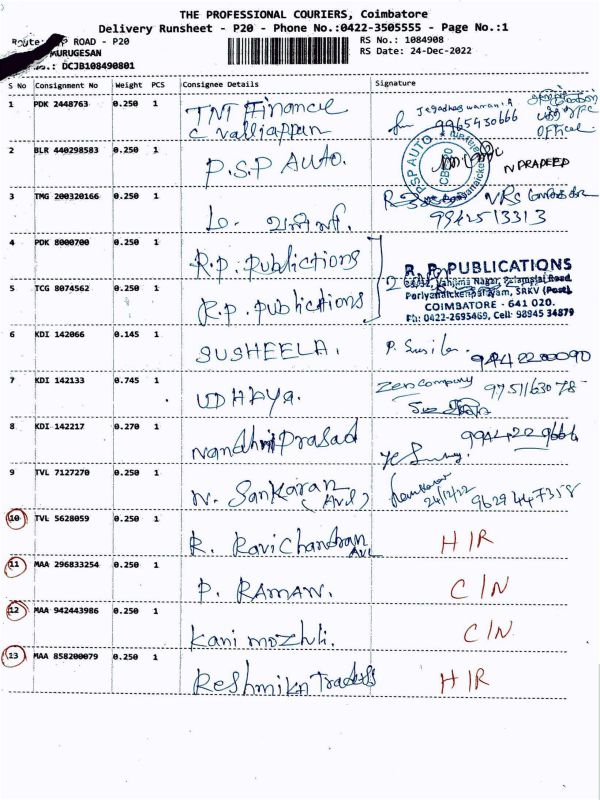 THE PROFESSIONAL COURIERS, Coimbatore
Delivery Runsheet - P20 - Phone No.:0422-3505555 - Page No.:1
ROAD - P20
RS No.: 1084908
MURUGESAN
RS Date: 24-Dec-2022
DCJB108490801
S No Consignment No Weight PCS Consignee Details Signature
1 PDK 2448763 0.250 1 TNT Finance
C Valliappan
9965430666
OFFICE
2 BLR 440298583 0.250 1 P.S.P AUTO. PSP AUTO N PRADEEP
3 TMG 200320166 0.250 1
9942513313
4 PDK 8000700 0.250 1 R.P. Publictions
R. P. PUBLICATIONS
5 TCG 8074562 0.250 1 R.P. Publictions
COIMBATORE - 641 020.
Ph: 0422-2695469, Cell: 98945 34879
6 KDI 142066 0.145 1 SUSHEELA. 9442200090
7 KDI 142133 0.745 1 UDHAYA. Zen Company 9751163078
8 KDI 142217 0.270 1 Nandhni Prasad 9944229666
9 TVL 7127270 0.250 1 N. Sankaran
(Avl) 24/12/22 9629447358
10 TVL 5628059 0.250 1 R. Ravi Chandran H/R
Avl
11 MAA 296833254 0.250 1 P. RAMAN. C/N
12 MAA 942443986 0.250 1 Kani mozhli. C/N
13 MAA 858200079 0.250 1 Reshmika Traders H/R